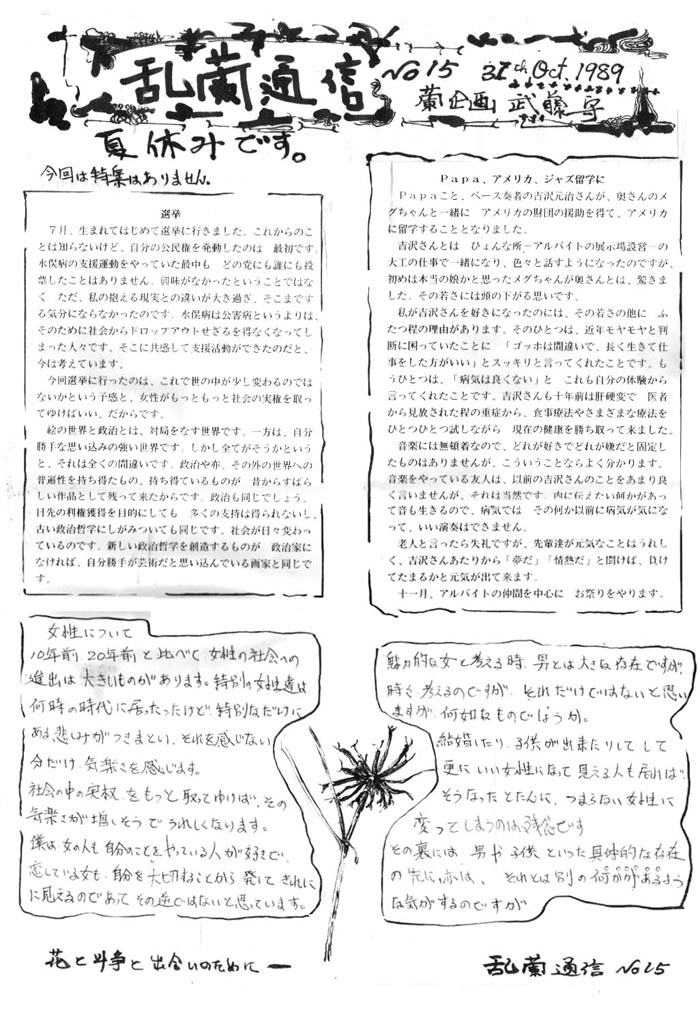 乱蘭通信
No15 31th Oct. 1989
蘭企画 武藤守
夏休みです。
今回は特集はありません。
選挙
7月、生まれてはじめて選挙に行きました。これからのこ
とは知らないけど、自分の公民権を発動したのは 最初です。
水俣病の支援運動をやっていた最中も どの党にも誰にも投
票したことはありません。興味がなかったということではな
く ただ、私の抱える現実との違いが大き過ぎ、そこまです
る気分にならなかったのです。水俣病は公害病というよりは、
そのために社会からドロップアウトせざるを得なくなってし
まった人々です。そこに共感して支援活動ができたのだと、
今は考えています。
今回選挙に行ったのは、これで世の中が少し変わるのでは
ないかという予感と、女性がもっともっと社会の実権を取っ
てゆけばいい、だからです。
絵の世界と政治とは、対局をなす世界です。一方は、自分
勝手な思い込みの強い世界です。しかし全てがそうかという
と、それは全くの間違いです。政治や亦、その外の世界への
普遍性を持ち得たもの、持ち得ているものが 昔からすばら
しい作品として残って来たからです。政治も同じでしょう。
目先の利権獲得を目的にしても 多くの支持は得られないし、
古い政治哲学にしがみついても同じです。社会が日々変わっ
ているのです。新しい政治哲学を創造するものが 政治家に
なければ、自分勝手が芸術だと思い込んでいる画家と同じで
す。
Papa、アメリカ、ジャズ留学に
Papaこと、ベース奏者の吉沢元治さんが、奥さんのメ
グちゃんと一緒に アメリカの財団の援助を得て、アメリカ
に留学することとなりました。
吉沢さんとは ひょんな所−アルバイトの展示場設営−の
大工の仕事で一緒になり、色々と話すようになったのですが、
初めは本当の娘かと思ったメグちゃんが奥さんとは、驚きま
した。その若さには頭の下がる思いです。
私が吉沢さんを好きになったのには、その若さの他に ふ
たつ程の理由があります。そのひとつは、近年モヤモヤと判
断に困っていたことに 「ゴッホは間違いで、長く生きて仕
事をした方がいい」とスッキリと言ってくれたことです。も
うひとつは、「病気は良くない」と これも自分の体験から
言ってくれたことです。吉沢さんも十年前は肝硬変で 医者
から見放された程の重症から、食事療法やさまざまな療法を
ひとつひとつ試しながら 現在の健康を勝ち取って来ました。
音楽には無頓着なので、どれが好きでどれが嫌だと固定し
たものはありませんが、こういうことならよく分かります。
音楽をやっている友人は、以前の吉沢さんのことをあまり良
く言いませんが、それは当然です。内に伝えたい何かがあっ
て音も生きるので、病気では その何か以前に病気が気にな
って、いい演奏はできません。
老人と言ったら失礼ですが、先輩達が元気なことはうれし
く、吉沢さんあたりから「夢だ」「情熱だ」と聞けば、負け
てたまるかと元気が出て来ます。
十一月、アルバイトの仲間を中心に お祭りをやります。
女性について
10年前 20年前と比べて 女性の社会への
進出は 大きいものがあります。特別の女性達は
何時の時代に居ったけど 特別なだけに
ある悲しみがつきまとい、それを感じない
分だけ 気楽さを感じます。
社会の中の実权をもっと取ってゆけば、その
気楽さが増しそうで うれしくなります。
僕は 女の人も 自分のことをやっている人が好きで、
恋している女も、自分を大切ることから発してきれいに
に見えるのであって その逆ではないと思っています。
魅力的な女と考える時、男とは大きな存在ですが、
時々考えるのですが それだけではないと思い
ますが 何如なものでしょうか。
結婚したり 子供が出来たりして して
更に いい女性になって 見える人も居れば
そうなったとたんに、つまらない女性に
変ってしまうのは残念です
その裏には 男や子供といった具体的な存在
の先に亦は、それとは別の何かがあるよう
な気がするのですが
花と斗争と出会いのために ー
乱蘭通信 No15